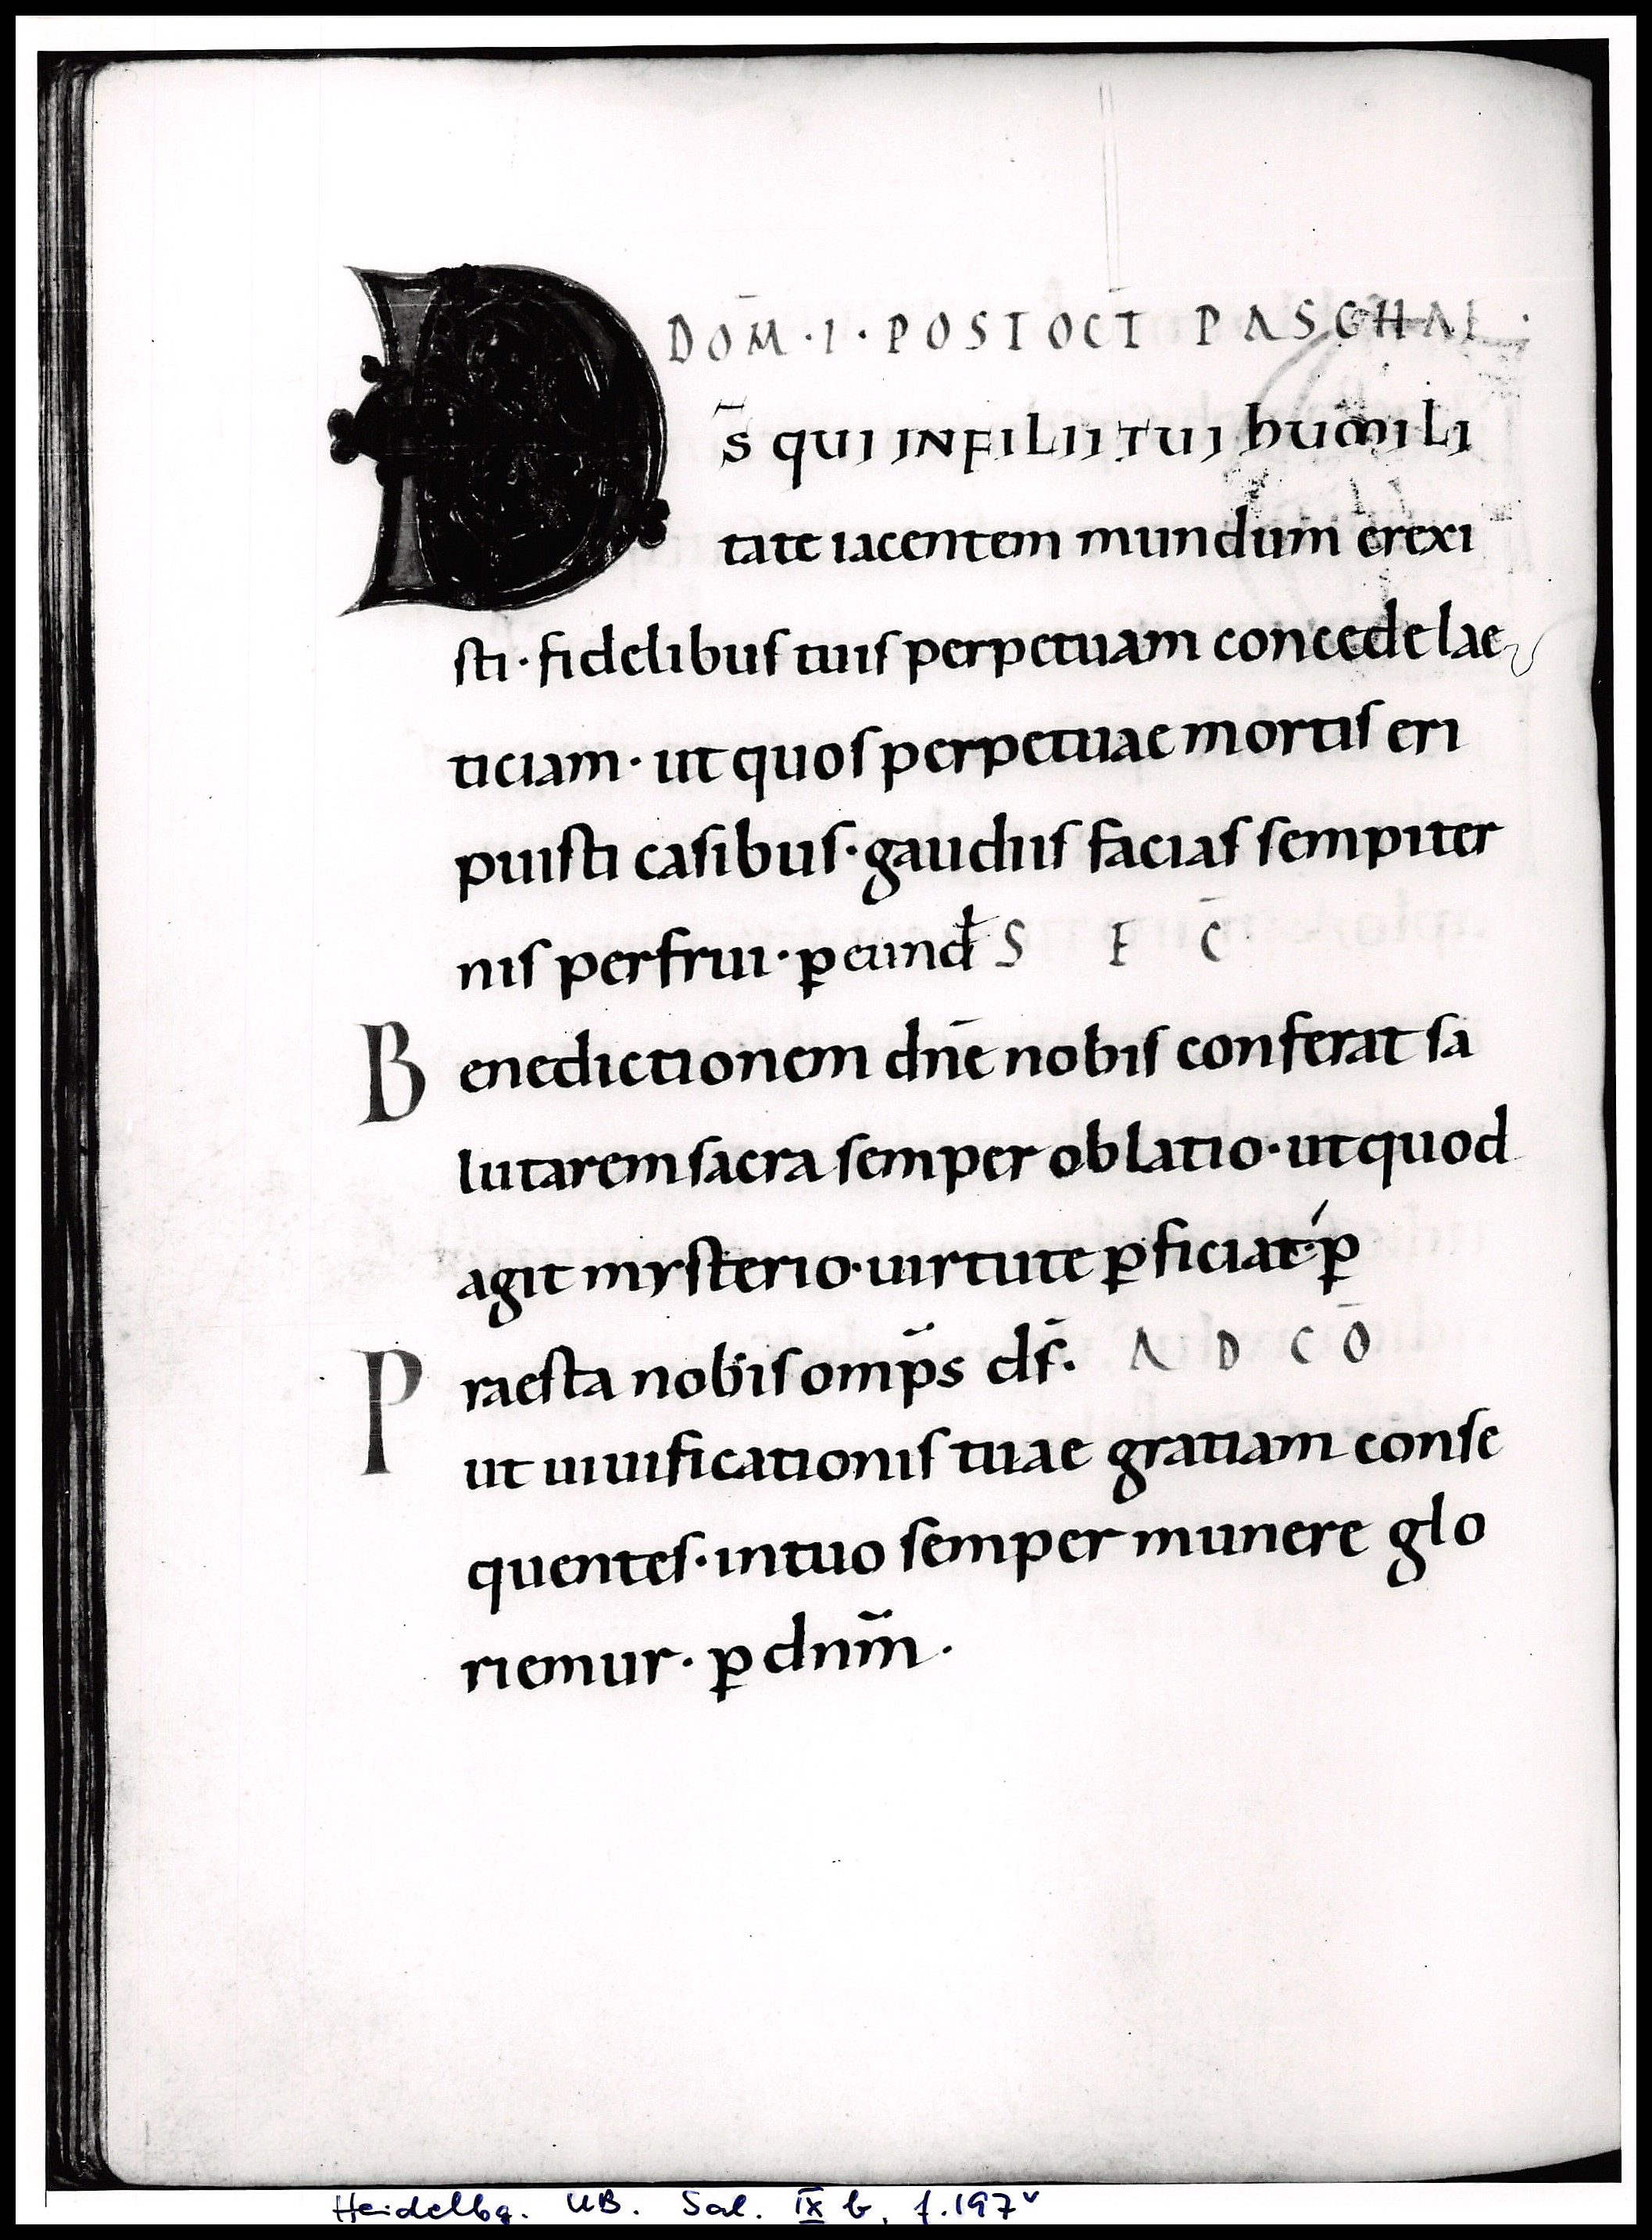 DOM̄ · I · POST OCT̄ PASCHAE ·
DS̄ QUI IN FILII TUI humili
tate iacentem mundum erexi
sti · fidelibus tuis perpetuam concede lae
ticiam · ut quos perpetuae mortis eri
puisti casibus · gaudiis facias sempiter
nis perfrui · ꝑ eund̄ S E C̄
Benedictionem dn̄e nobis conferat sa
lutarem sacra semper oblatio · ut quod
agit mysterio · uirtute ꝑficiat · ꝑ
Praesta nobis omp̄s ds̄ · A D C Ō
ut uiuificationis tuae gratiam conse
quentes · in tuo semper munere glo
riemur · ꝑ dnm̄ ·
Heidelbg. UB. Sal. IX b, f. 197ᵛ